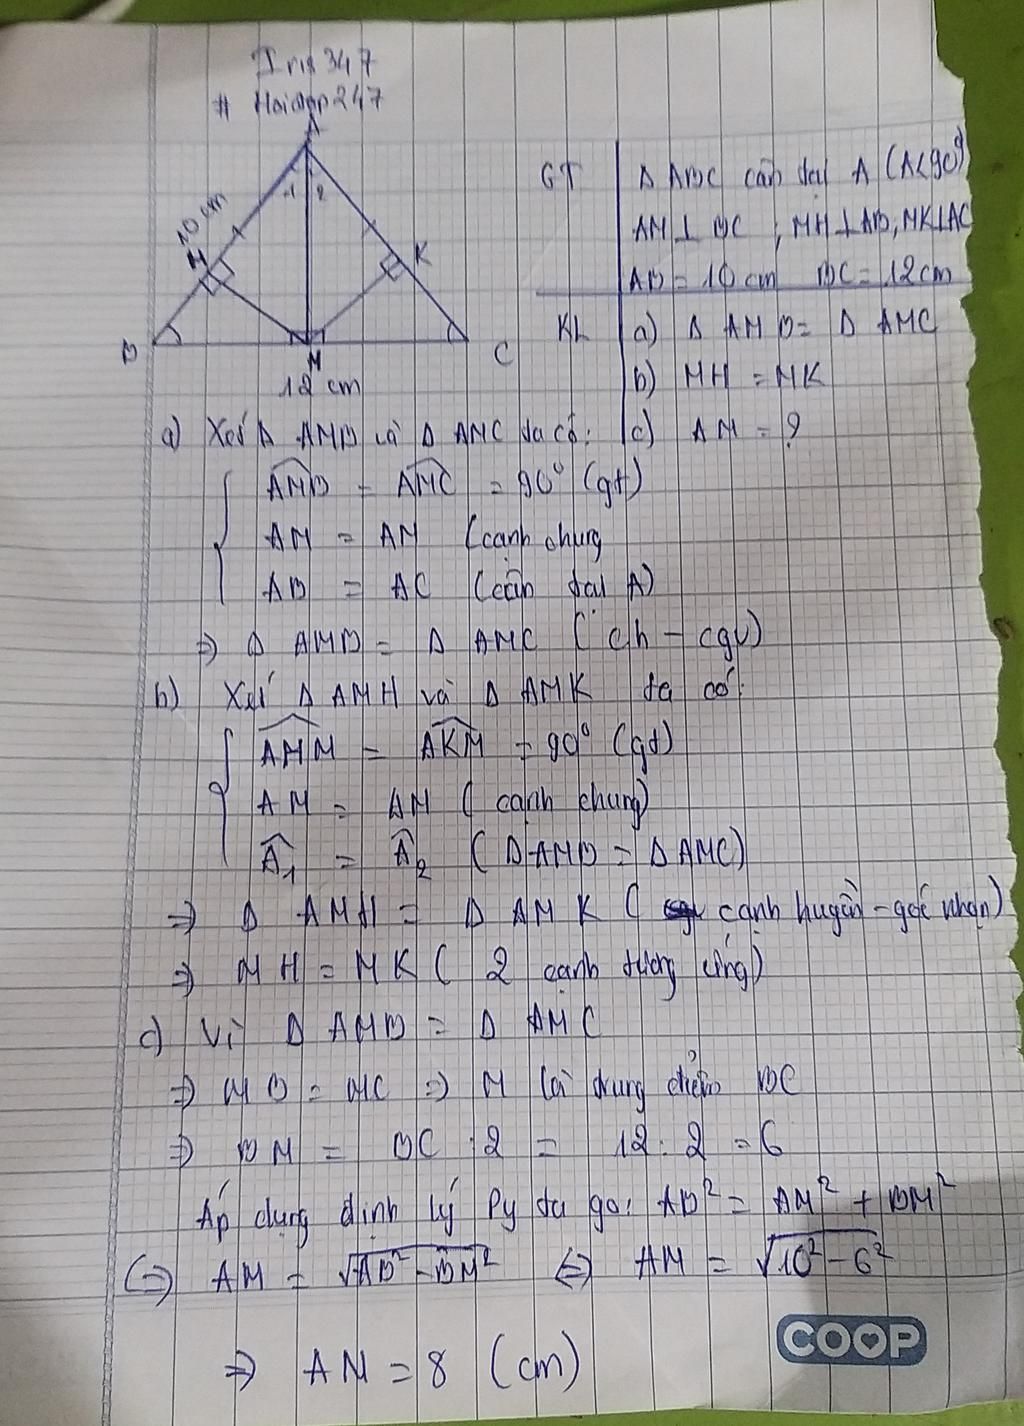 Iris347
# Hoidap247
A
1 2
10 cm
H
K
B
M
C
12 cm
GT
Δ ABC cân tại A (A<90°)
AM ⊥ BC ; MH ⊥ AB, MK ⊥ AC
AB = 10 cm BC = 12 cm
KL
a) Δ AMB = Δ AMC
b) MH = MK
c) AM = ?
a) Xét Δ AMB và Δ AMC ta có:
{ \widehat{AMB} = \widehat{AMC} = 90° (gt)
AM = AM (cạnh chung
AB = AC (cân tại A)
⇒ Δ AMB = Δ AMC (ch - cgv)
b) Xét Δ AMH và Δ AMK ta có:
{ \widehat{AHM} = \widehat{AKM} = 90° (gt)
AM = AM (cạnh chung)
\widehat{A}₁ = \widehat{A}₂ (Δ AMB = Δ AMC)
⇒ Δ AMH = Δ AMK (cạnh huyền - góc nhọn)
⇒ MH = MK (2 cạnh tương ứng)
c) Vì Δ AMB = Δ AMC
⇒ MB = MC ⇒ M là trung điểm BC
⇒ BM = BC : 2 = 12 : 2 = 6
Áp dụng định lý Py ta go: AB² = AM² + BM²
(=) AM = √(AB² - BM²) (=) AM = √(10² - 6²)
⇒ AM = 8 (cm)
COOP